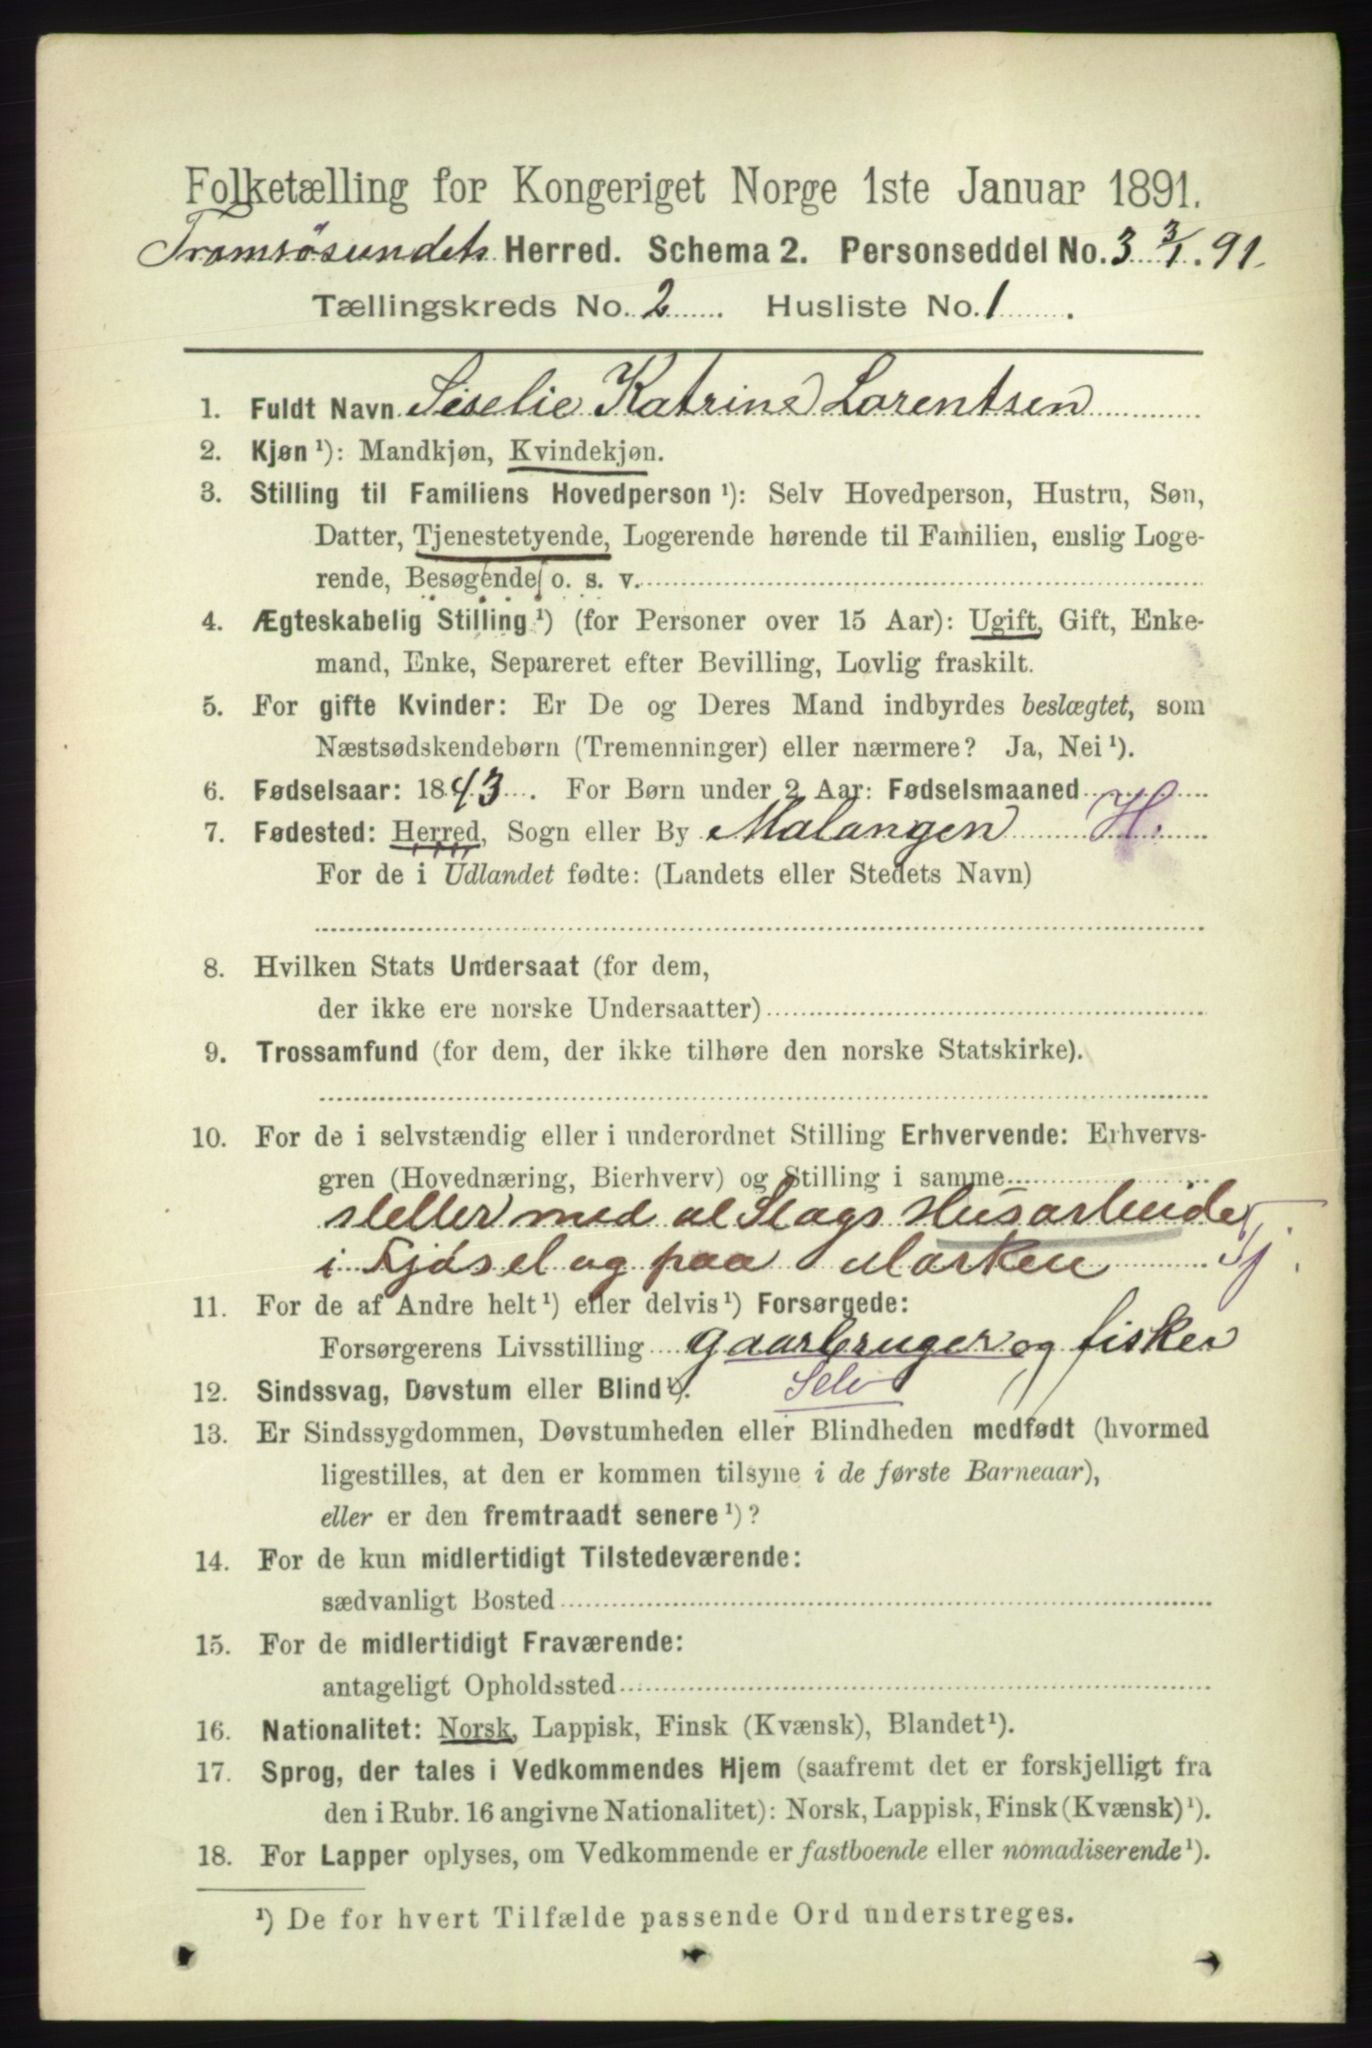 Folketælling for Kongeriget Norge 1ste Januar 1891.
Tromsösundets Herred. Schema 2. Personseddel No. 3 3/1. 91.
Tællingskreds No. 2 Husliste No. 1 .
1. Fuldt Navn Siselie Katrine Lorentsen
2. Kjøn ¹): Mandkjøn, Kvindekjøn.
3. Stilling til Familiens Hovedperson ¹): Selv Hovedperson, Hustru, Søn,
Datter, Tjenestetyende, Logerende hørende til Familien, enslig Loge-
rende, Besøgende o. s. v.
4. Ægteskabelig Stilling ¹) (for Personer over 15 Aar): Ugift, Gift, Enke-
mand, Enke, Separeret efter Bevilling, Lovlig fraskilt.
5. For gifte Kvinder: Er De og Deres Mand indbyrdes beslægtet, som
Næstsødskendebørn (Tremenninger) eller nærmere? Ja, Nei ¹).
6. Fødselsaar: 1843. For Børn under 2 Aar: Fødselsmaaned
7. Fødested: Herred, Sogn eller By Malangen H.
For de i Udlandet fødte: (Landets eller Stedets Navn)
8. Hvilken Stats Undersaat (for dem,
der ikke ere norske Undersaatter)
9. Trossamfund (for dem, der ikke tilhøre den norske Statskirke).
10. For de i selvstændig eller i underordnet Stilling Erhvervende: Erhvervs-
gren (Hovednæring, Bierhverv) og Stilling i samme
steller med al Slags Husarbeide
i Fjösel og paa Marken Tj.
11. For de af Andre helt ¹) eller delvis ¹) Forsørgede:
Forsørgerens Livsstilling gaarbruger og fisker
12. Sindssvag, Døvstum eller Blind ¹). Selv
13. Er Sindssygdommen, Døvstumheden eller Blindheden medfødt (hvormed
ligestilles, at den er kommen tilsyne i de første Barneaar),
eller er den fremtraadt senere ¹)?
14. For de kun midlertidigt Tilstedeværende:
sædvanligt Bosted
15. For de midlertidigt Fraværende:
antageligt Opholdssted
16. Nationalitet: Norsk, Lappisk, Finsk (Kvænsk), Blandet ¹).
17. Sprog, der tales i Vedkommendes Hjem (saafremt det er forskjelligt fra
den i Rubr. 16 angivne Nationalitet): Norsk, Lappisk, Finsk (Kvænsk) ¹).
18. For Lapper oplyses, om Vedkommende er fastboende eller nomadiserende ¹).
¹) De for hvert Tilfælde passende Ord understreges.